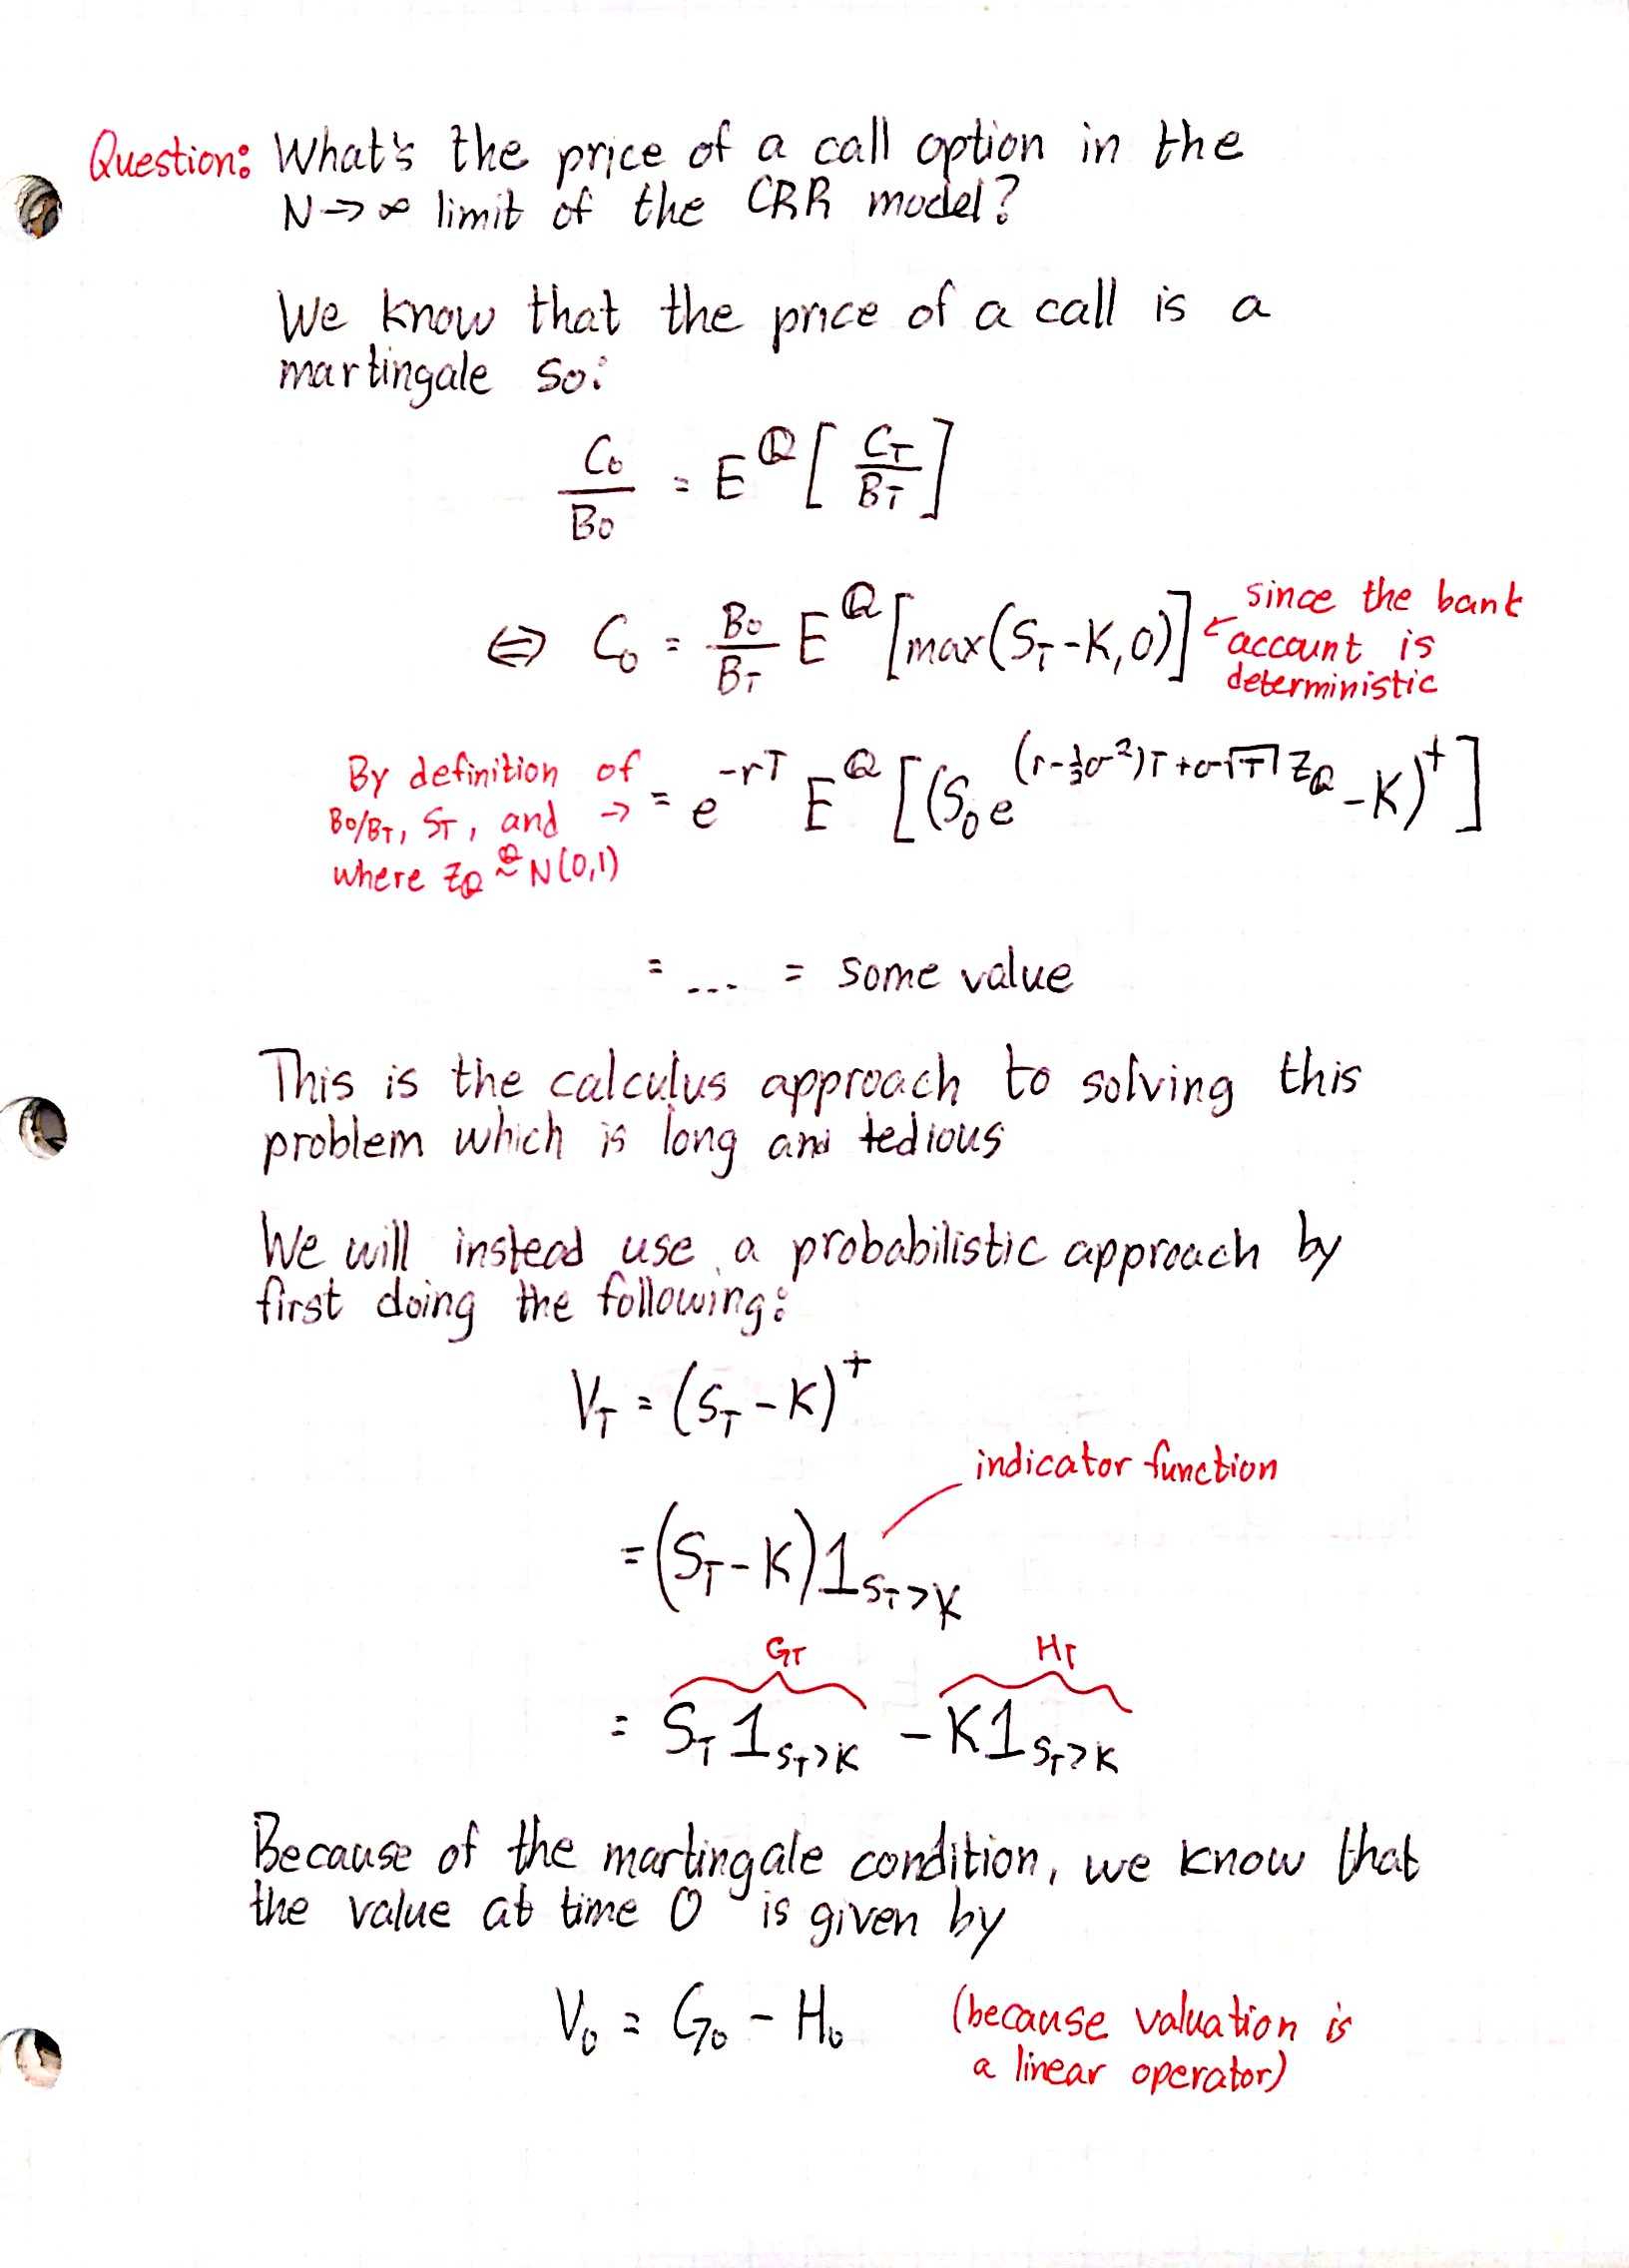 Question: What's the price of a call option in the
N→∞ limit of the CRR model?
We know that the price of a call is a
martingale so:
C₀/B₀ = E^ℚ[C_T/B_T]
⇔ C₀ = B₀/B_T E^ℚ[max(S_T-K,0)] ← since the bank
account is
deterministic
By definition of
B₀/B_T, S_T, and →
where Z_ℚ ~^ℚ N(0,1)
= e^{-rT} E^ℚ[(S₀e^{(r-½σ²)T+σ√T Z_ℚ} - K)^+]
= ... = some value
This is the calculus approach to solving this
problem which is long and tedious
We will instead use a probabilistic approach by
first doing the following:
V_T = (S_T - K)^+
indicator function
= (S_T - K)1_{S_T>K}
G_T H_T
= S_T 1_{S_T>K} - K1_{S_T>K}
Because of the martingale condition, we know that
the value at time 0 is given by
V₀ = G₀ - H₀ (because valuation is
a linear operator)